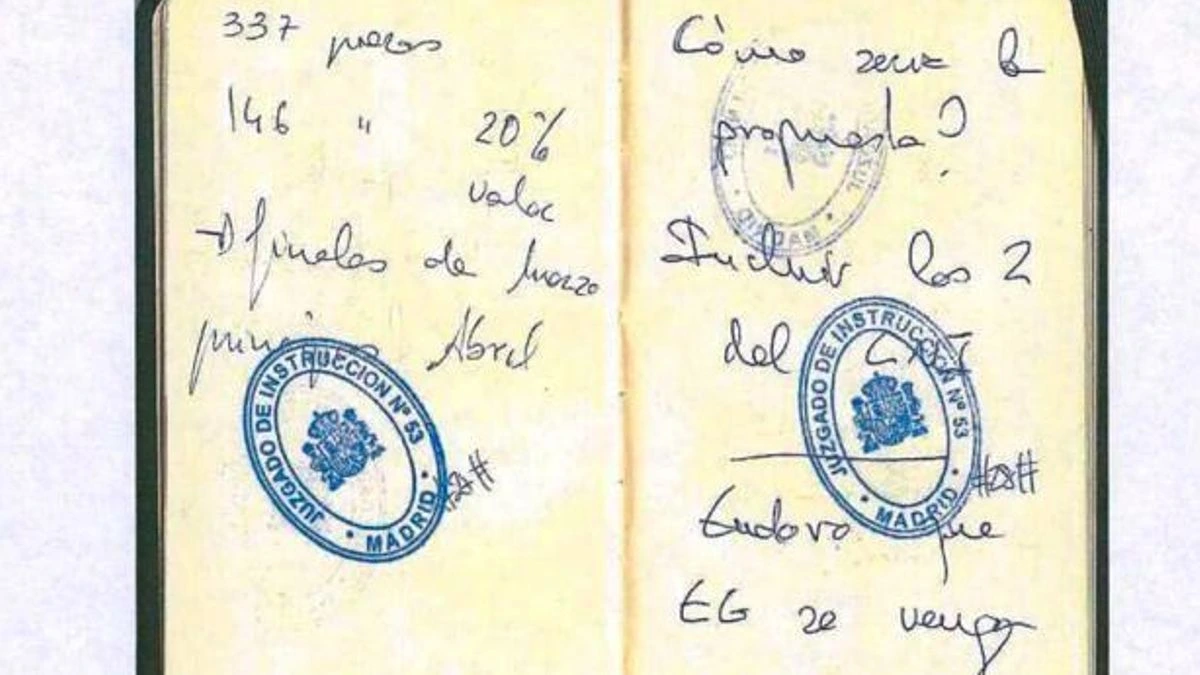 337
146 " 20%
valor
→ finales de Marzo
principios Abril
JUZGADO DE INSTRUCCION Nº 53 · MADRID ·
#28#
Cómo seria la
propuesta?
MADRID
Incluir los 2
del
JUZGADO DE INSTRUCCION Nº 53 · MADRID ·
#28#
que
EG se venga